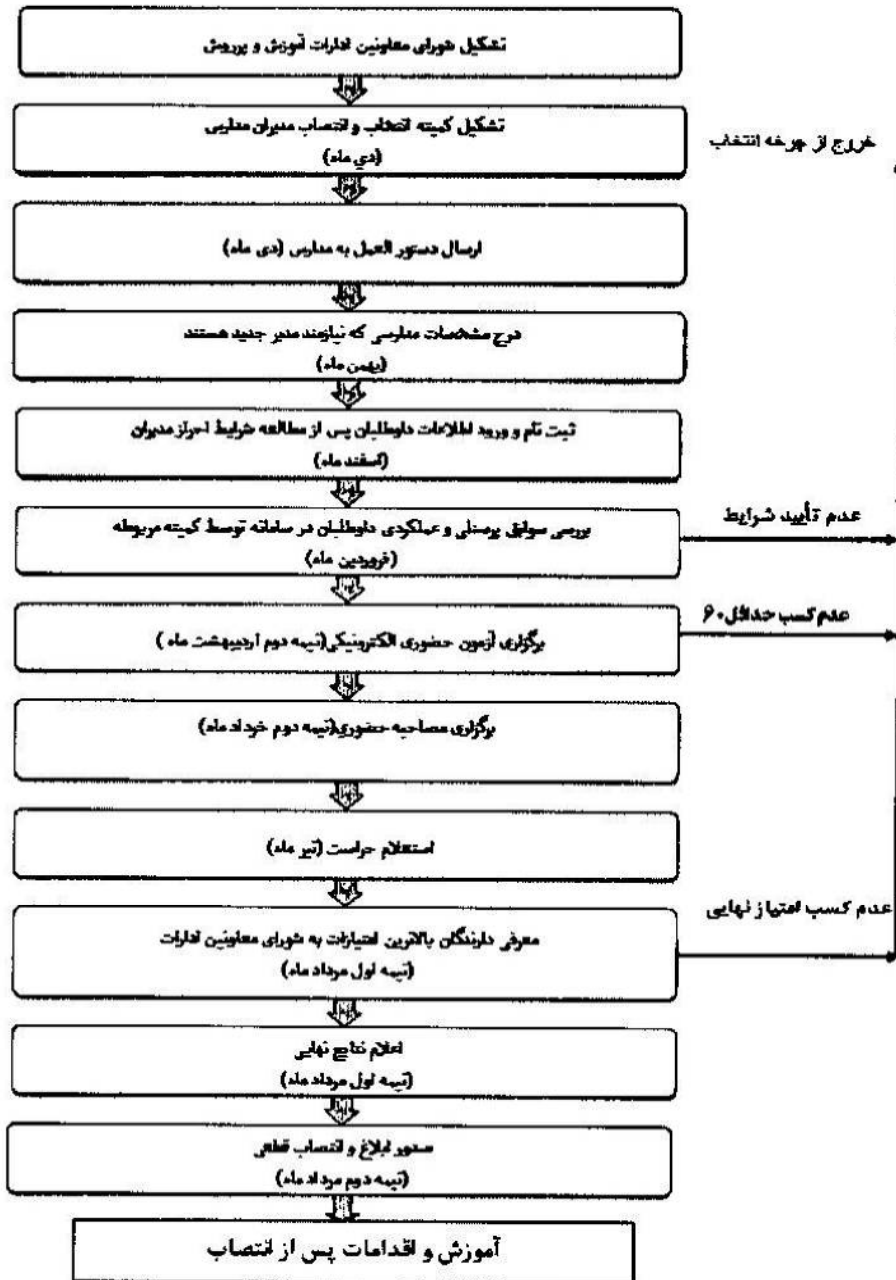 تشکیل شورای معاونین ادارات آموزش و پرورش
تشکیل کمیته انتخاب و انتصاب مدیران مدارس
(دی ماه)
خروج از چرخه انتخاب
ارسال دستور العمل به مدارس (دی ماه)
درج مشخصات مدارسی که نیازمند مدیر جدید هستند
(بهمن ماه)
ثبت نام و ورود اطلاعات داوطلبان پس از مطالعه شرایط احراز مدیران
(اسفند ماه)
بررسی سوابق پرسنلی و عملکردی داوطلبان در سامانه توسط کمیته مربوطه
(فروردین ماه)
عدم تأیید شرایط
برگزاری آزمون حضوری الکترونیکی(نیمه دوم اردیبهشت ماه )
عدم کسب حداقل ۶۰
برگزاری مصاحبه حضوری(نیمه دوم خرداد ماه)
استعلام حراست (تیر ماه)
معرفی دارندگان بالاترین امتیازات به شورای معاونین ادارات
(نیمه اول مرداد ماه)
عدم کسب امتیاز نهایی
اعلام نتایج نهایی
(نیمه اول مرداد ماه)
صدور ابلاغ و انتصاب قطعی
(نیمه دوم مرداد ماه)
آموزش و اقدامات پس از انتصاب